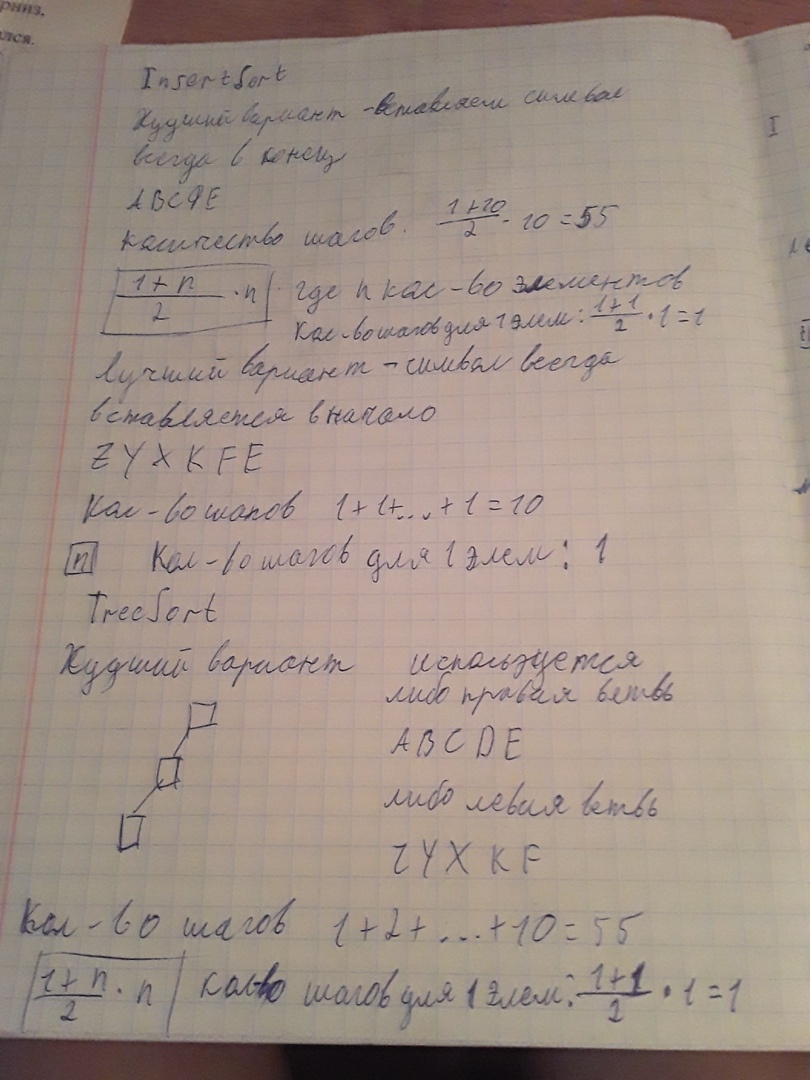 рниз.
лся.
InsertSort
Худший вариант - вставляем символ
всегда в конец
ABCDE
количество шагов. 1+10/2 · 10 = 55
1+n/2 · n где n кол-во элементов
Кол-во шагов для 1 элем: 1+1/2 · 1 = 1
Лучший вариант - символ всегда
вставляется в начало
Z Y X K F E
Кол-во шагов 1+1+...+1=10
n Кол-во шагов для 1 элем: 1
TreeSort
Худший вариант используется
либо правая ветвь
A B C D E
либо левая ветвь
Z Y X K F
Кол-во шагов 1+2+...+10=55
1+n/2 · n кол-во шагов для 1 элем: 1+1/2 · 1 = 1
I